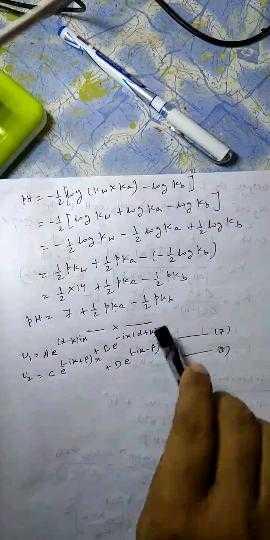 pH = -½[log (Kw × Ka) - log Kb]
= -½ [log Kw + log Ka - log Kb]
= -½ log Kw - ½ log Ka + ½ log Kb
= ½ pKw + ½ pKa - (-½ log Kb)
= ½ × 14 + ½ pKa - ½ pKb
pH = 7 + ½ pKa - ½ pKb
x
u₁ = A e + B e (7)
u₂ = C e + D e (8)